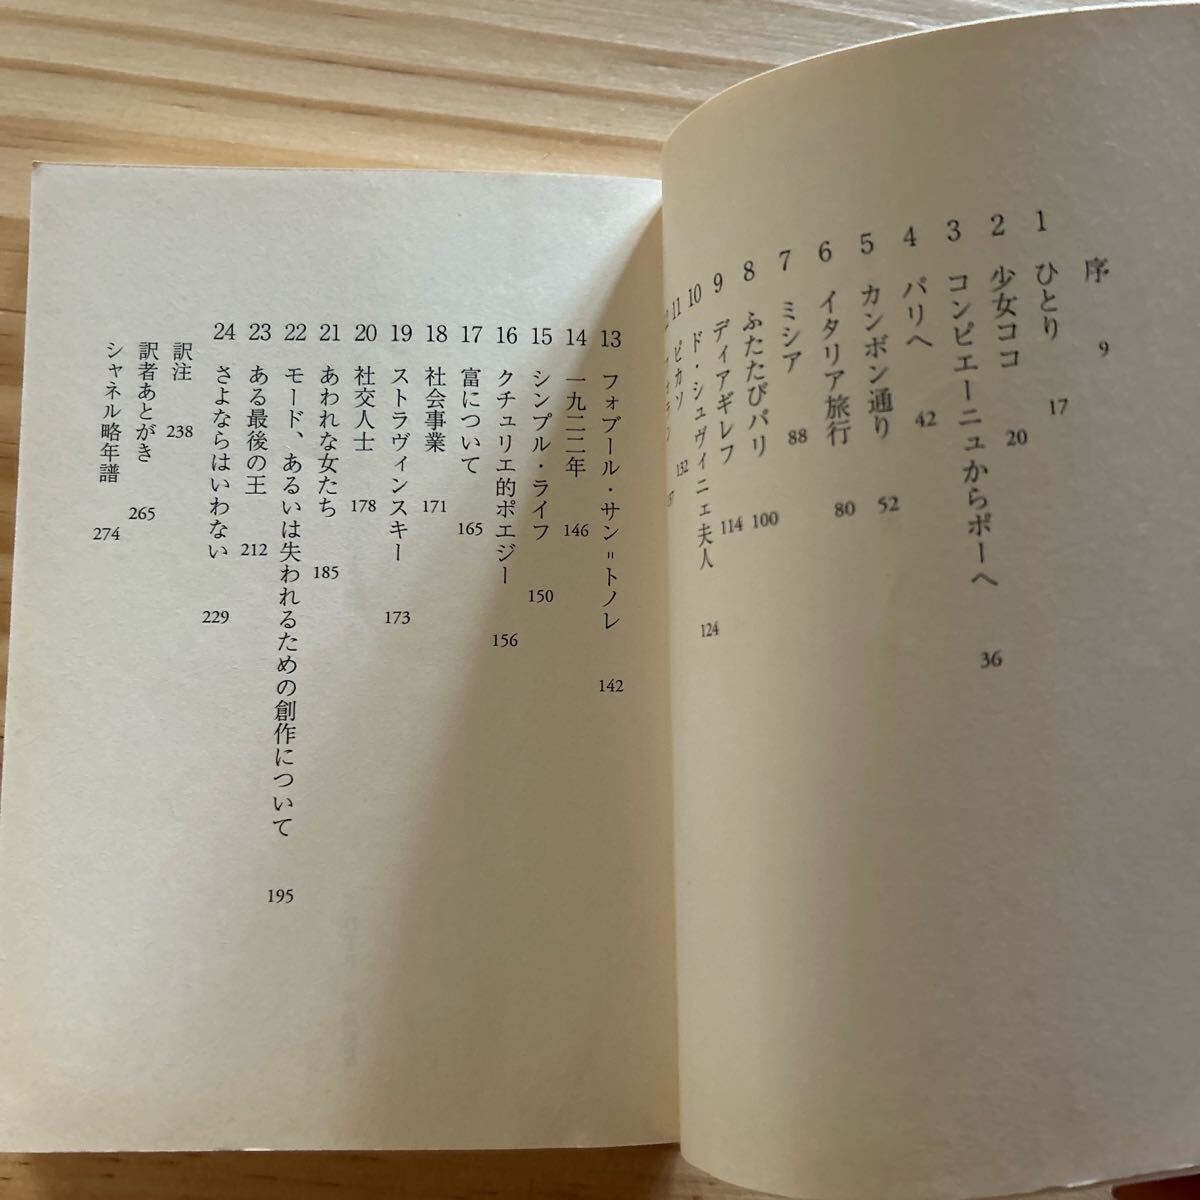 序 9
1 ひとり 17
2 少女ココ 20
3 コンピエーニュからポーへ 36
4 パリへ 42
5 カンボン通り 52
6 イタリア旅行 80
7 ミシア 88
8 ふたたびパリ 100
9 ディアギレフ 114
10 ド・シュヴィニェ夫人 124
11 ピカソ 132
13 フォブール・サン=トノレ 142
14 一九二二年 146
15 シンプル・ライフ 150
16 クチュリエ的ポエジー 156
17 富について 165
18 社会事業 171
19 ストラヴィンスキー 173
20 社交人士 178
21 あわれな女たち 185
22 モード、あるいは失われるための創作について 195
23 ある最後の王 212
24 さよならはいわない 229
訳注 238
訳者あとがき 265
シャネル略年譜 274